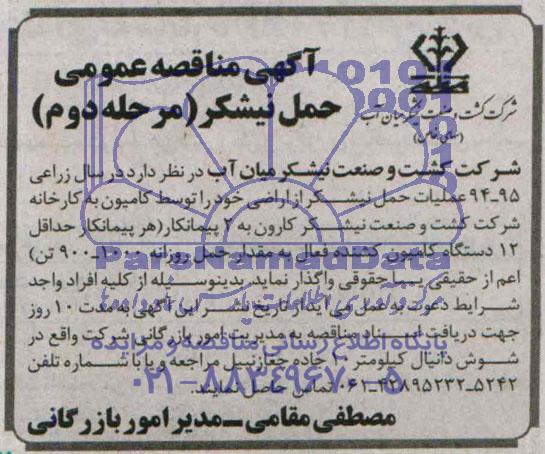 آگهی مناقصه عمومی
حمل نیشکر (مرحله دوم)
شرکت کشت و صنعت نیشکر میان آب
(سهامی خاص)
شرکت کشت و صنعت نیشکر میان آب در نظر دارد در سال زراعی
۹۵-۹۴ عملیات حمل نیشکر از اراضی خود را توسط کامیون به کارخانه
شرکت کشت و صنعت نیشکر کارون به ۲ پیمانکار (هر پیمانکار حداقل
۱۲ دستگاه کامیون کشنده فعال به مقدار حمل روزانه ۱۰۰۰-۹۰۰ تن)
اعم از حقیقی یا حقوقی واگذار نماید. بدینوسیله از کلیه افراد واجد
شرایط دعوت به عمل می آید از تاریخ نشر این آگهی به مدت ۱۰ روز
جهت دریافت اسناد مناقصه به مدیریت امور بازرگانی شرکت واقع در
شوش دانیال کیلومتر جاده جفارنبیل مراجعه و یا با شماره تلفن
۵۲۴۲-۰۶۱-۴۲۸۹۵۲۳۲ تماس حاصل نمایند.
مصطفی مقامی - مدیر امور بازرگانی
ParsNamadData
پایگاه اطلاع رسانی مناقصه و مزایده
۰۲۱-۸۸۳۴۹۶۷۰-۵